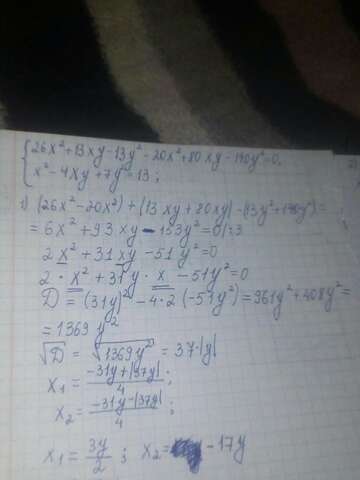 {26x²+13xy-13y²-20x²+80xy-140y²=0,
x²-4xy+7y²=13;
1) (26x²-20x²)+(13xy+80xy)-(13y²+140y²)=
=6x²+93xy-153y²=0/:3
2x²+31xy-51y²=0
2·x²+31y·x-51y²=0
D=(31y)²-4·2(-51y²)=961y²+408y²=
=1369y²
√D=√1369y²=37·|y|
x₁=(-31y+|37y|)/4;
x₂=(-31y-|37y|)/4;
x₁=3y/2; x₂=-17y